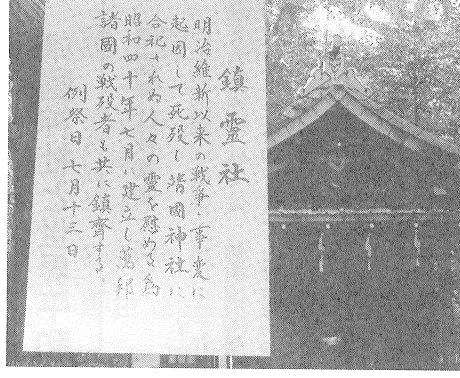 鎮霊社
明治維新以来の戦争・事変に
起因して死歿し靖國神社に
合祀されぬ人々の霊を慰める為
昭和四十年七月に建立し萬邦
諸國の戦歿者も共に鎮斎する。
例祭日七月十三日